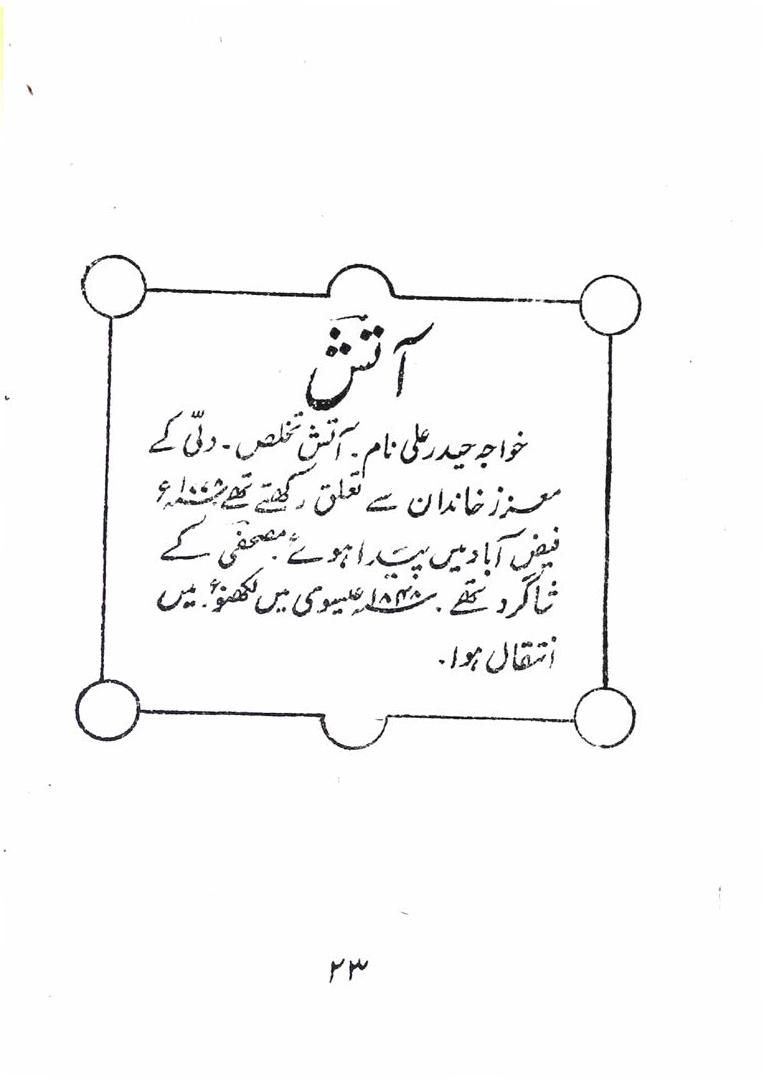 آتش
خواجہ حیدر علی نام۔ آتش تخلص۔ دلّی کے
معزز خاندان سے تعلق رکھتے تھے
فیض آباد میں پیدا ہوئے۔ مصحفی کے
شاگرد تھے۔ ۱۸۴۸ عیسوی میں لکھنؤ میں
انتقال ہوا۔
۲۳